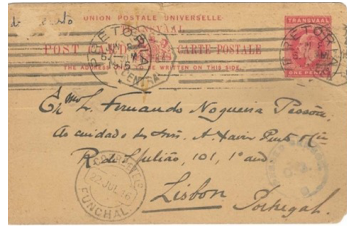 UNION POSTALE UNIVERSELLE
TRANSVAAL
POST CARD CARTE POSTALE
THE ADDRESS TO BE WRITTEN ON THIS SIDE.
PRETORIA
CENTRAL
PRETORIA
ONE PENNY
Exmo Sr. Fernando Nogueira Pessôa,
Ao cuidado do Snr. A. Xavier Pinto & Cia
R. S. Julião, 101, 1º and.
Lisbon
Portugal.
FUNCHAL